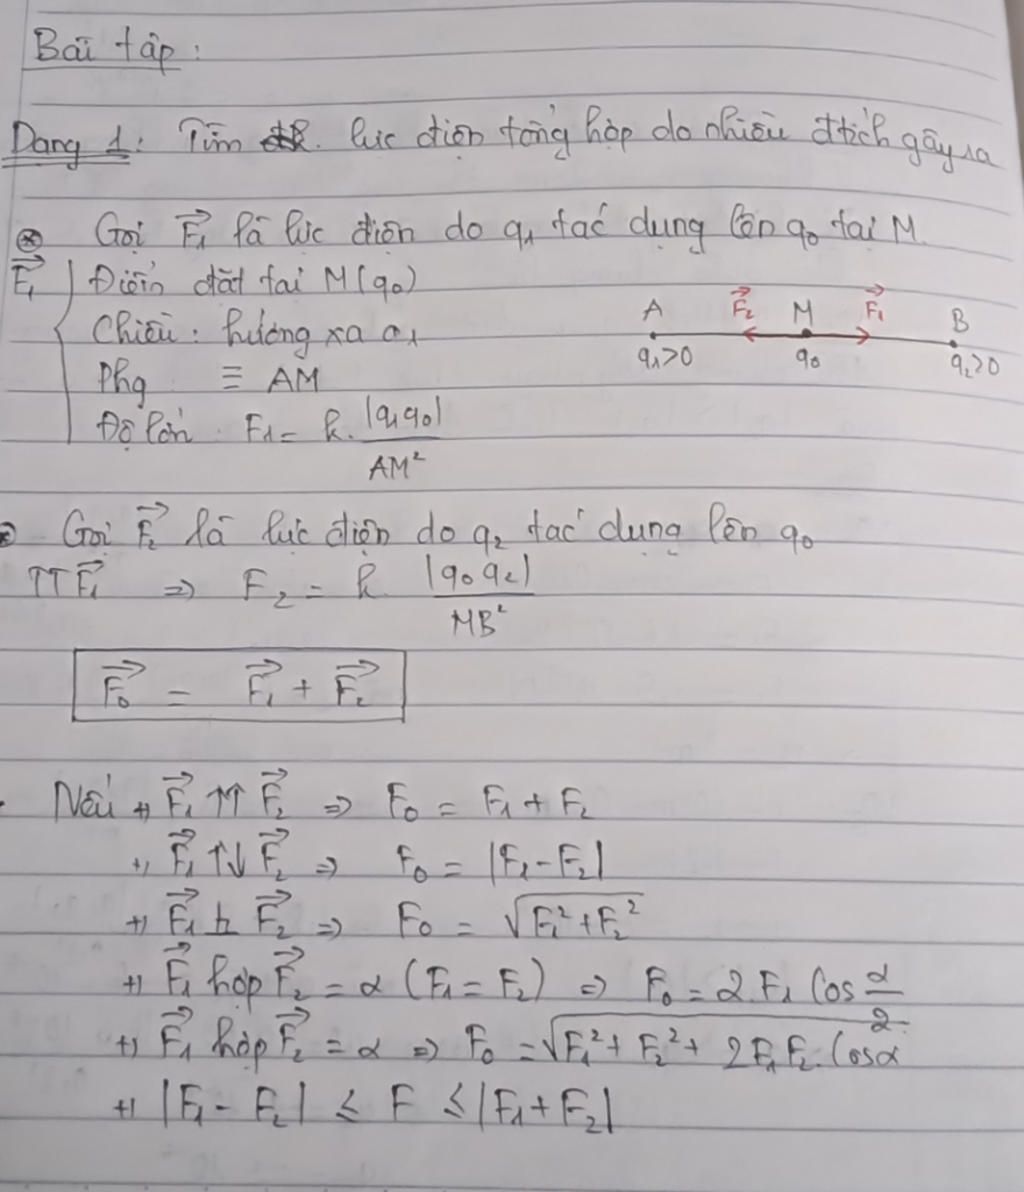 Bài tập:
Dạng 1: Tìm lực điện tổng hợp do nhiều đtích gây ra
⊛ Gọi F₁→ là lực điện do q₁ tác dụng lên q₀ tại M.
F₁→ { Điểm đặt tại M(q₀)
Chiều: hướng xa q₁
Phg ≡ AM
Độ lớn: F₁ = k. |q₁q₀| / AM²
A F₂→ M F₁→ B
q₁>0 q₀ q₂>0
⊛ Gọi F₂→ là lực điện do q₂ tác dụng lên q₀
TT F₁→ => F₂ = k |q₀q₂| / MB²
F₀→ = F₁→ + F₂→
. Nếu +) F₁→ ↑↑ F₂→ => F₀ = F₁ + F₂
+) F₁→ ↑↓ F₂→ => F₀ = |F₁ - F₂|
+) F₁→ ⊥ F₂→ => F₀ = √(F₁² + F₂²)
+) F₁→ hợp F₂→ = α (F₁ = F₂) => F₀ = 2.F₁ Cos α/2
+) F₁→ hợp F₂→ = α => F₀ = √(F₁² + F₂² + 2F₁F₂.Cosα)
+) |F₁ - F₂| ≤ F ≤ |F₁ + F₂|